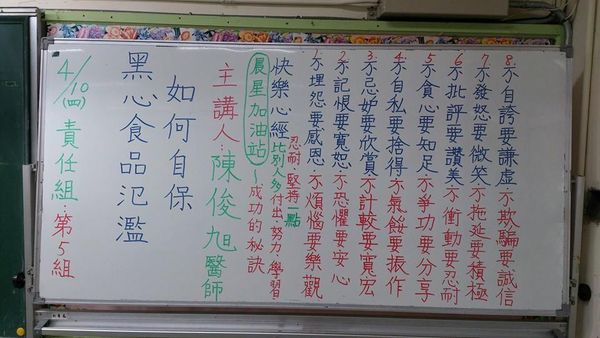 4/10(四) 責任組:第5組
黑心食品氾濫
如何自保
主講人:陳俊旭醫師
晨星加油站~成功的秘訣
快樂心經 比別人多付出·努力·學習
忍耐·堅持一點
1.不埋怨要感恩 不煩惱要樂觀
2.不記恨要寬恕 不恐懼要安心
3.不忌妒要欣賞 不計較要寬宏
4.不自私要捨得 不氣餒要振作
5.不貪心要知足 不爭功要分享
6.不批評要讚美 不衝動要忍耐
7.不發怒要微笑 不拖延要積極
8.不自誇要謙虛 不欺騙要誠信